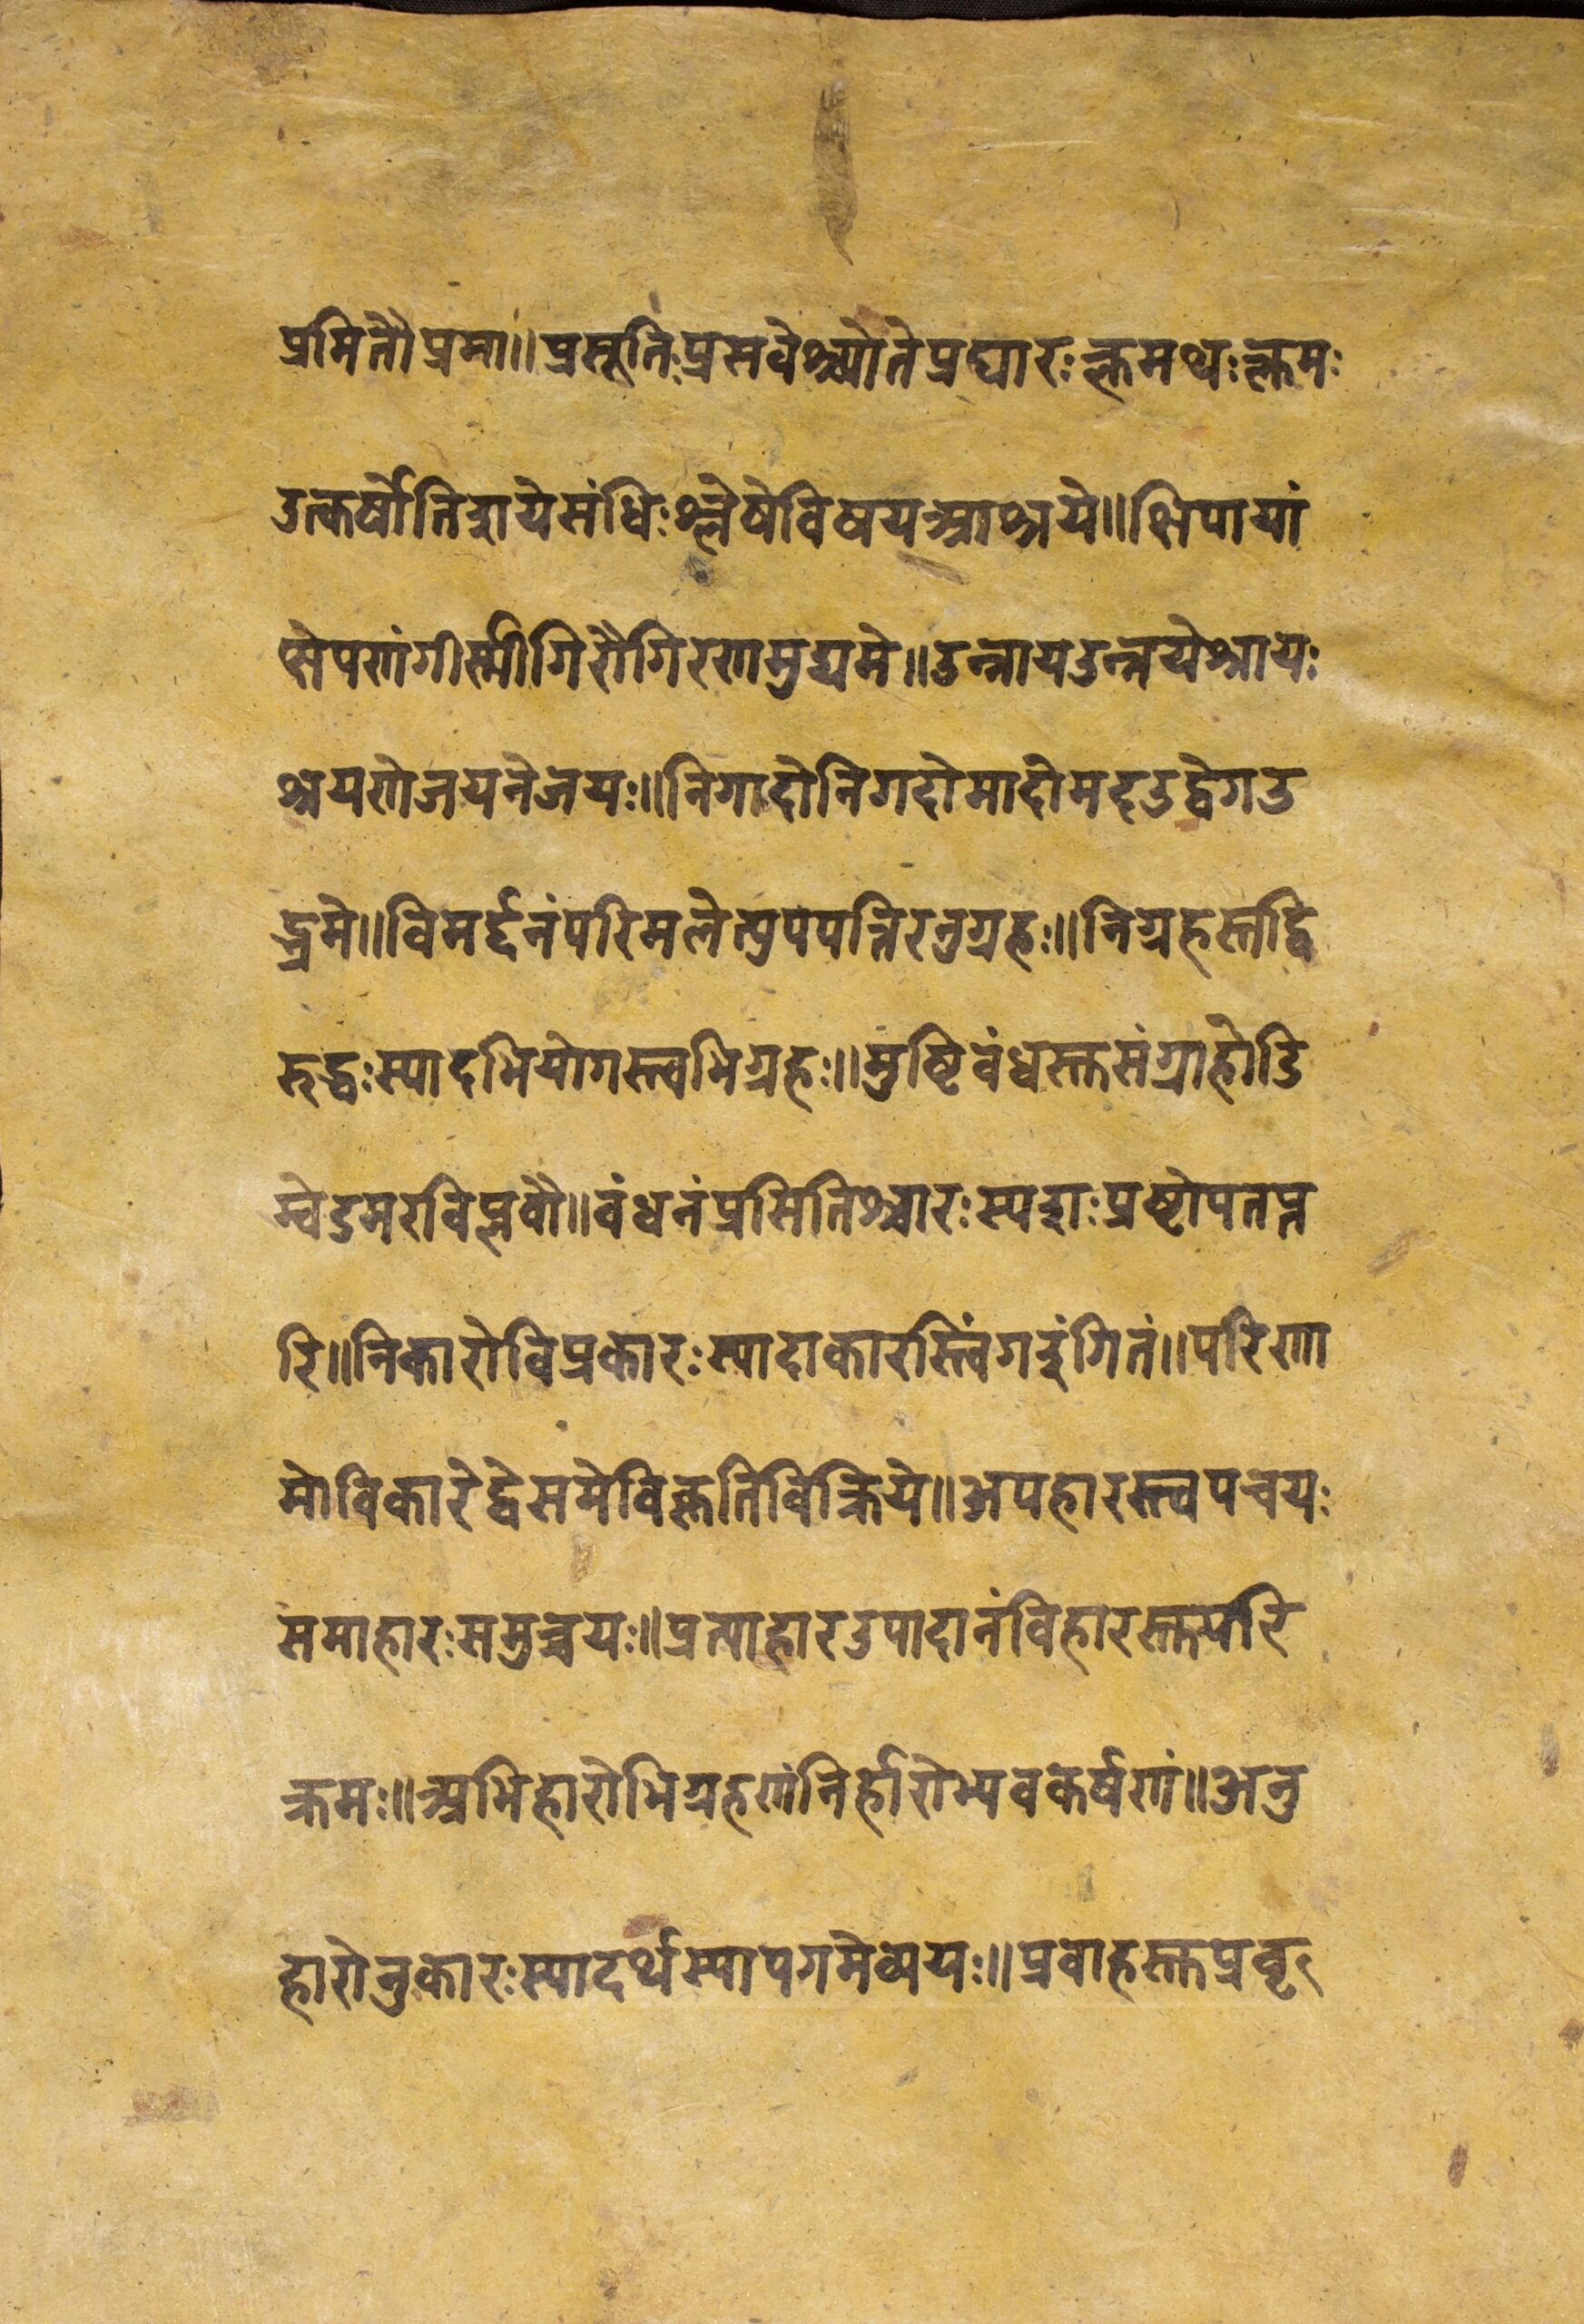 प्रमितौप्रमा॥प्रसूतिःप्रसवेश्च्योतेप्रघारःक्लमथःक्लमः
उत्कर्षोतिशयेसंधिःश्लेषेविषयआश्रये॥क्षिपायां
क्षेपणंगीर्स्मीगिरौगिरणमुद्यमे॥उन्नायउन्नयेश्रायः
श्रयणेजयनेजयः॥निगादोनिगदोमादोमदउद्वेगउ
द्भ्रमे॥विमर्द्दनंपरिमलेत्युपपत्तिरनुग्रहः॥निग्रहस्तद्वि
रुद्धःस्यादभियोगस्त्वभिग्रहः॥मुष्टिवंधस्तुसंग्राहोडि
म्वेडमरविप्लवौ॥वंधनंप्रसितिश्चारःस्पशःप्रष्टोपतप्त
रि॥निकारोविप्रकारःस्यादाकारस्त्विंगइंगितं॥परिणा
मोविकारेद्वेसमेविकृतिविक्रिये॥अपहारस्त्वपचयः
समाहारःसमुच्चयः॥प्रत्याहारउपादानंविहारस्तुपरि
क्रमः॥अभिहारोभिग्रहणंनिर्हारोभ्यवकर्षणं॥अनु
हारोनुकारःस्यादर्थस्यापगमेव्ययः॥प्रवाहस्तुप्रवृ